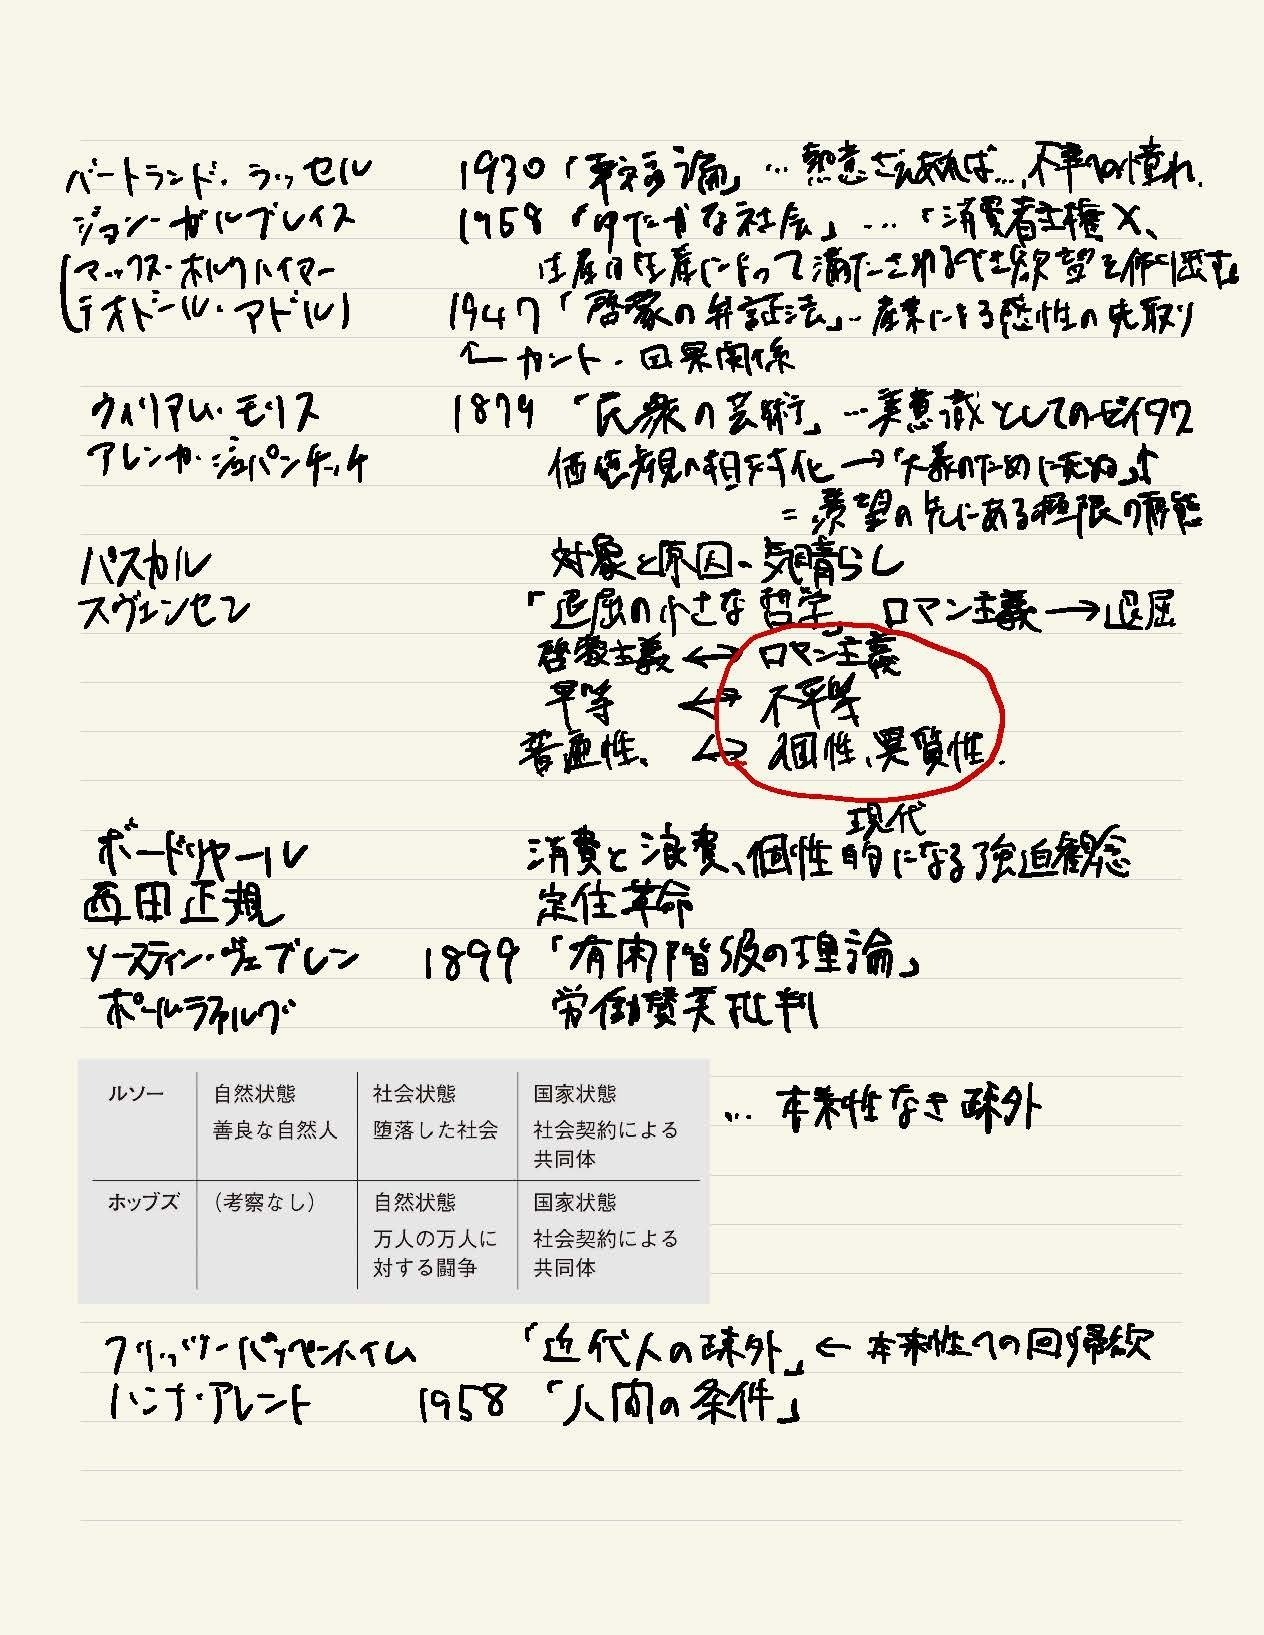 バートランド・ラッセル 1930「幸福論」… 熱意さえあれば…, 不幸への憧れ.
ジョン・ガルブレイス 1958「ゆたかな社会」…「消費者主権×、
マックス・ホルクハイマー 生産は生産によって満たされるべき欲望を作り出す
テオドール・アドルノ 1947「啓蒙の弁証法」… 産業による感性の先取り
← カント・因果関係
ウィリアム・モリス 1879「民衆の芸術」… 美意識としてのゼイタク
アレンカ・ジュパンチッチ 価値観の相対化 →「大義のために死ぬ」↑
= 羨望の先にある極限の
パスカル 対象と原因、気晴らし
スヴェンセン 「退屈の小さな哲学」 ロマン主義 → 退屈
啓蒙主義 ↔ ロマン主義
平等 ↔ 不平等
普遍性、 ↔ 個性、異質性.
現代
ボードリヤール 消費と浪費、個性的になる強迫観念
西田正規 定住革命
ソースティン・ヴェブレン 1899「有閑階級の理論」
ポールラファルグ 労働賛美批判
ルソー 自然状態 社会状態 国家状態
善良な自然人 堕落した社会 社会契約による
共同体
… 本来性なき疎外
ホッブズ （考察なし） 自然状態 国家状態
万人の万人に 社会契約による
対する闘争 共同体
フリッツ・パッペンハイム 「近代人の疎外」← 本来性への回帰欲
ハンナ・アレント 1958「人間の条件」